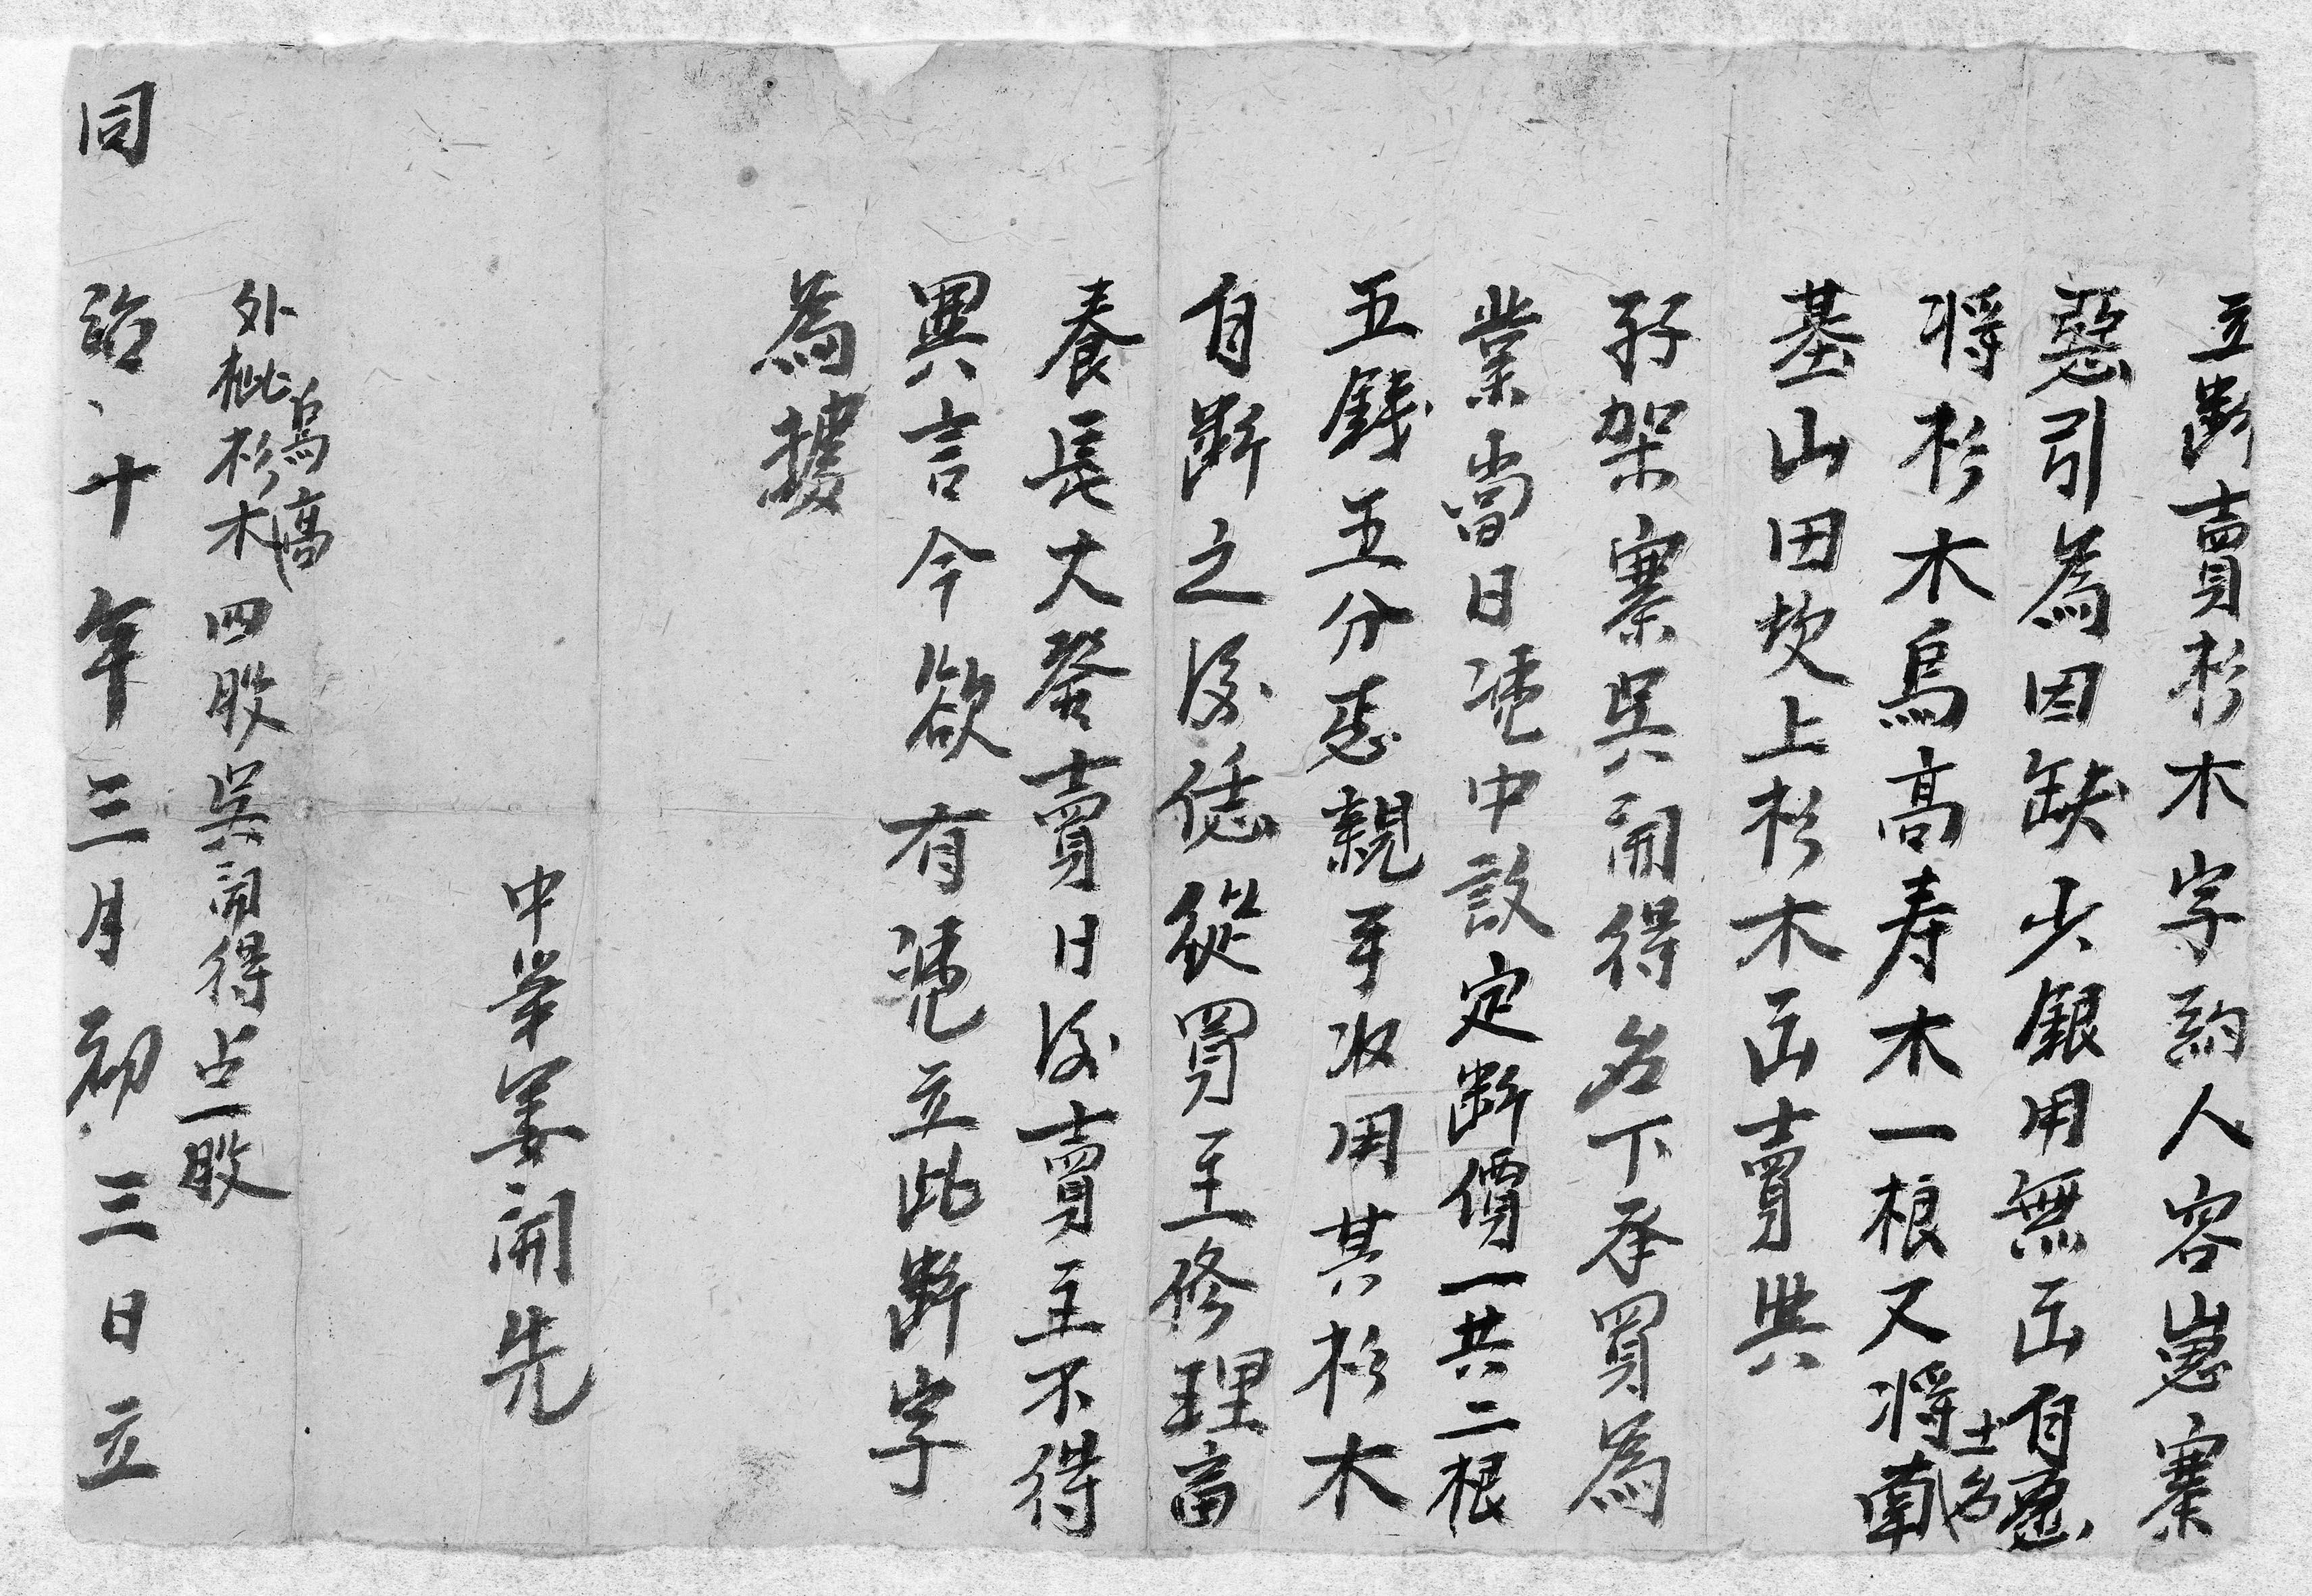 立斷賣杉木字約人容嵩寨
惡引為因缺少銀用無出自愿
將杉木烏高寿木一根又將土名南
基山田坎上杉木出賣與
孖架寨吳開得名下承買為
業當日凴中議定斷價一共二根
五錢五分悉親手收用其杉木
自斷之後恁從買主修理畜
養長大發賣日後賣主不得
異言今欲有凴立此斷字
為據
中筆姜開先
外批烏高杉木四股吳開得占一股
同治十年三月初三日立